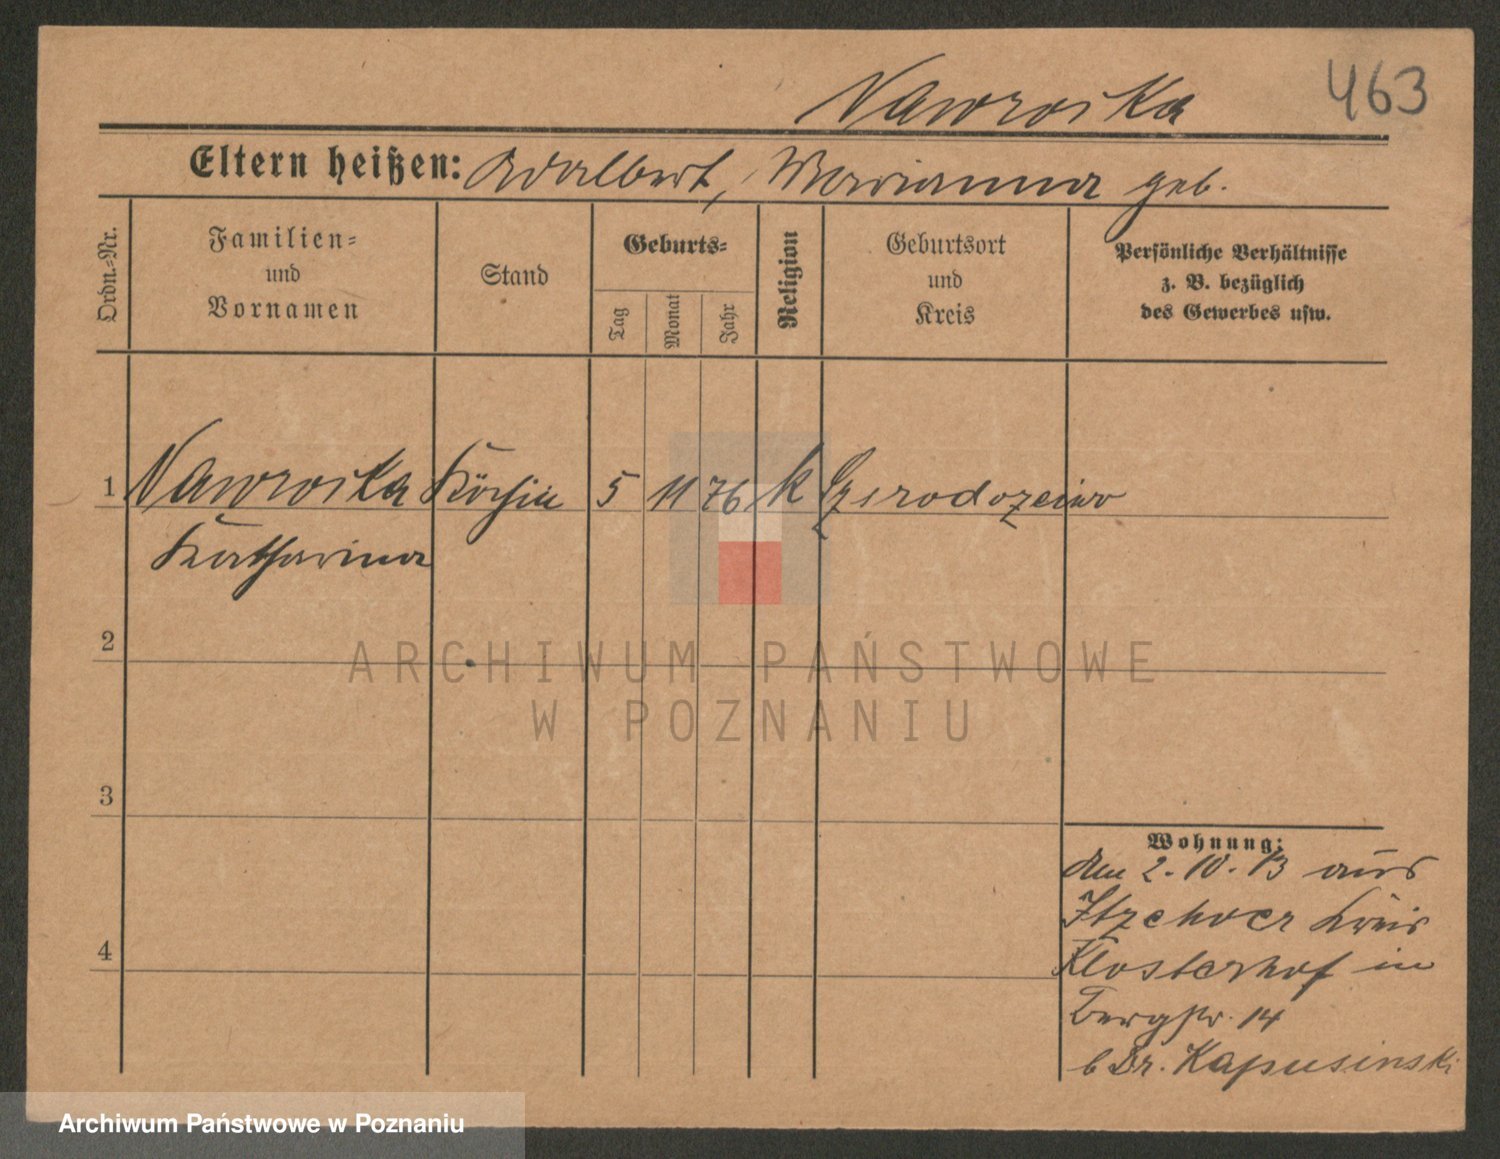 463
Nawroska
Eltern heißen: Adalbert, Marianna geb.
Ordn.-Nr.
Familien-
und
Vornamen
Stand
Geburts-
Tag
Monat
Jahr
Religion
Geburtsort
und
Kreis
Persönliche Verhältnisse
z. B. bezüglich
des Gewerbes usw.
1 Nawroska Köchin 5 11 76 k
Katharina
2
3
4
Wohnung:
den 2.10.13 aus
Itzehoer Kreis
Klosterhof in
Bergstr. 14
b Dr. Kapusinski
ARCHIWUM PAŃSTWOWE
W POZNANIU
Archiwum Państwowe w Poznaniu